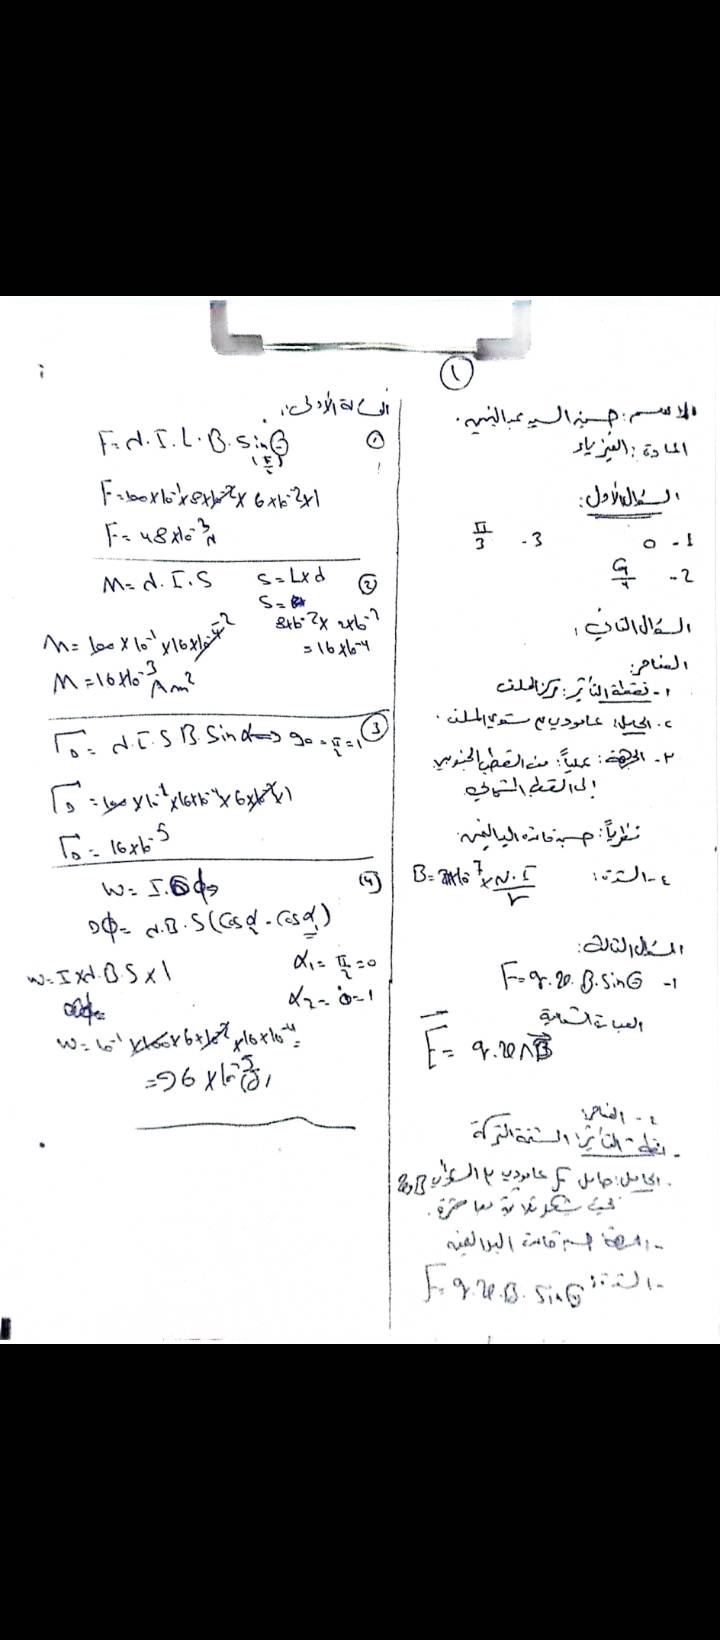 ١
الاسم: حسين السيد عبد النبي.
المادة: الفيزياء
السؤال الأول:
1- 0
3- π/3
2- G/4
السؤال الثاني:
العناصر:
١- نقطة التأثير: مركز الملف
٢. الحامل: عامودي على مستوي الملف.
٣- الجهة: عملياً: من القطب الجنوبي
إلى القطب الشمالي
نظرياً: حسب قاعدة اليد اليمنى
٤- الشدة: B = 10⁻⁷ × N.I / r
السؤال الثالث:
1- F = q.v.B.sinθ
العبارة الشعاعية
F = q.v∧B
٢- العناصر:
- نقطة التأثير: الشحنة المتحركة
- الحامل: حامل F عامودي
- الجهة حسب قاعدة اليد اليمنى
- الشدة: F = q.v.B.Sinθ
المسألة الأولى:
①
F = N.I.L.B.sinθ
(π/2)
F = 100×10⁻¹×8×10⁻²×6×10⁻²×1
F = 48×10⁻³ N
②
M = N.I.S S = L×d
S =
8×10⁻²×2×10⁻²
= 16×10⁻⁴
M = 100×10⁻¹×16×10⁻⁴
M = 16×10⁻³ A m²
③
Γ₀ = N.I.S B.Sin α => 90 = π/2 = 1
Γ₀ = 100×10⁻¹×16×10⁻⁴×6×10⁻²×1
Γ₀ = 16×10⁻⁵
(4)
W = I.Δϕ
Δϕ = N.B.S(Cosα₂ - Cosα₁)
W = I×N.B.S×1
α₁ = π/2 = 0
α₂ = 0 = 1
W = 10⁻¹×100×6×10⁻²×16×10⁻⁴ =
=> 96×10⁻⁵ J